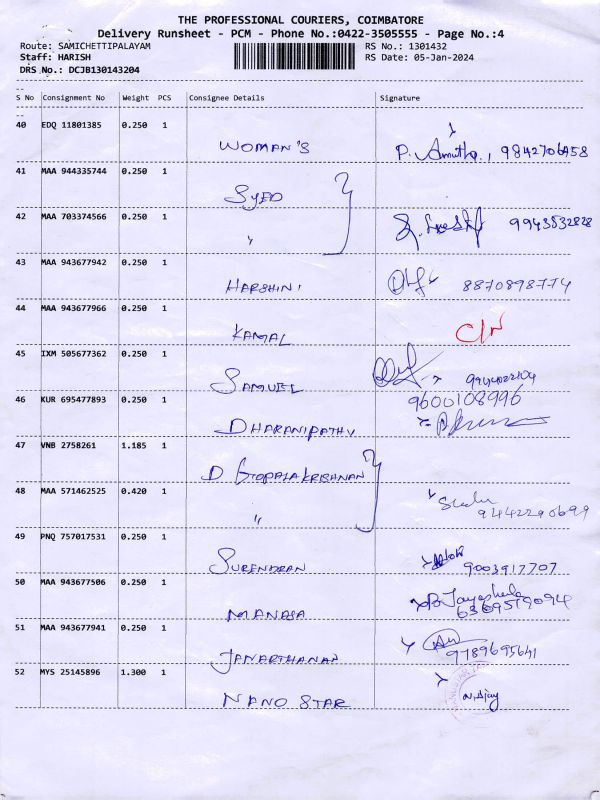 THE PROFESSIONAL COURIERS, COIMBATORE
Delivery Runsheet - PCM - Phone No.:0422-3505555 - Page No.:4
Route: SAMICHETTIPALAYAM RS No.: 1301432
Staff: HARISH RS Date: 05-Jan-2024
DRS No.: DCJB130143204
S No Consignment No Weight PCS Consignee Details Signature
40 EDQ 11801385 0.250 1
WOMAN'S P. Amutha, 9842706458
41 MAA 944335744 0.250 1
SYED
42 MAA 703374566 0.250 1
" 9943532828
43 MAA 943677942 0.250 1
HARSHINI 8870898774
44 MAA 943677966 0.250 1
KAMAL C/N
45 IXM 505677362 0.250 1
SAMUEL
46 KUR 695477893 0.250 1 9600108996
DHARANIPATHY
47 VNB 2758261 1.185 1
D GOPALAKRISHNAN
48 MAA 571462525 0.420 1
" 9442290699
49 PNQ 757017531 0.250 1
SURENDRAN 9003917707
50 MAA 943677506 0.250 1
MANASA 6369519094
51 MAA 943677941 0.250 1
JANARTHANAN 9789695641
52 MYS 25145896 1.300 1
NANO STAR N. Ajay